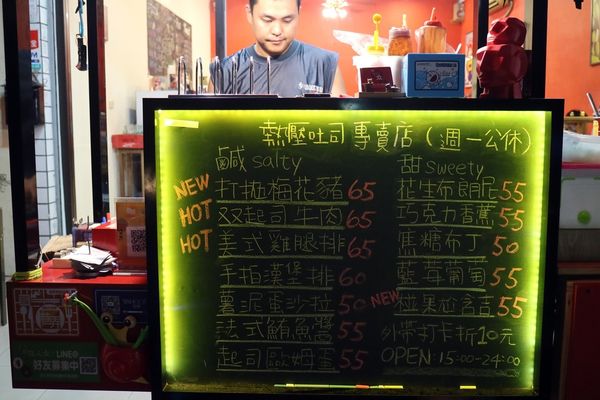 熱壓吐司專賣店(週一公休)
鹹 salty
NEW 打拋梅花豬 65
HOT 双起司牛肉 65
HOT 美式雞腿排 65
手拍漢堡排 60
薯泥蛋沙拉 50
法式鮪魚醬 55
起司歐姆蛋 55
甜 sweety
花生布朗尼 55
巧克力香蕉 55
焦糖布丁 50
藍莓葡萄 55
NEW 堅果尬含吉 55
外帶打卡折10元
OPEN: 15:00-24:00
LINE@
好友募集中